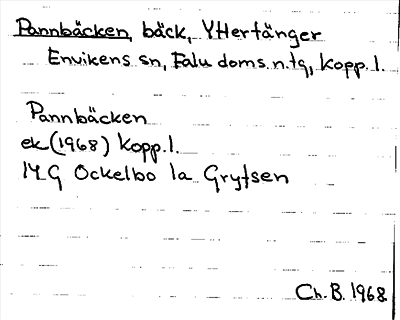 Pannbäcken, bäck, Yttertänger
Envikens sn, Falu doms.n.tg, Kopp.l.
Pannbäcken
ek (1968) Kopp.l.
14 G Ockelbo 1a Grytsen
Ch. B. 1968